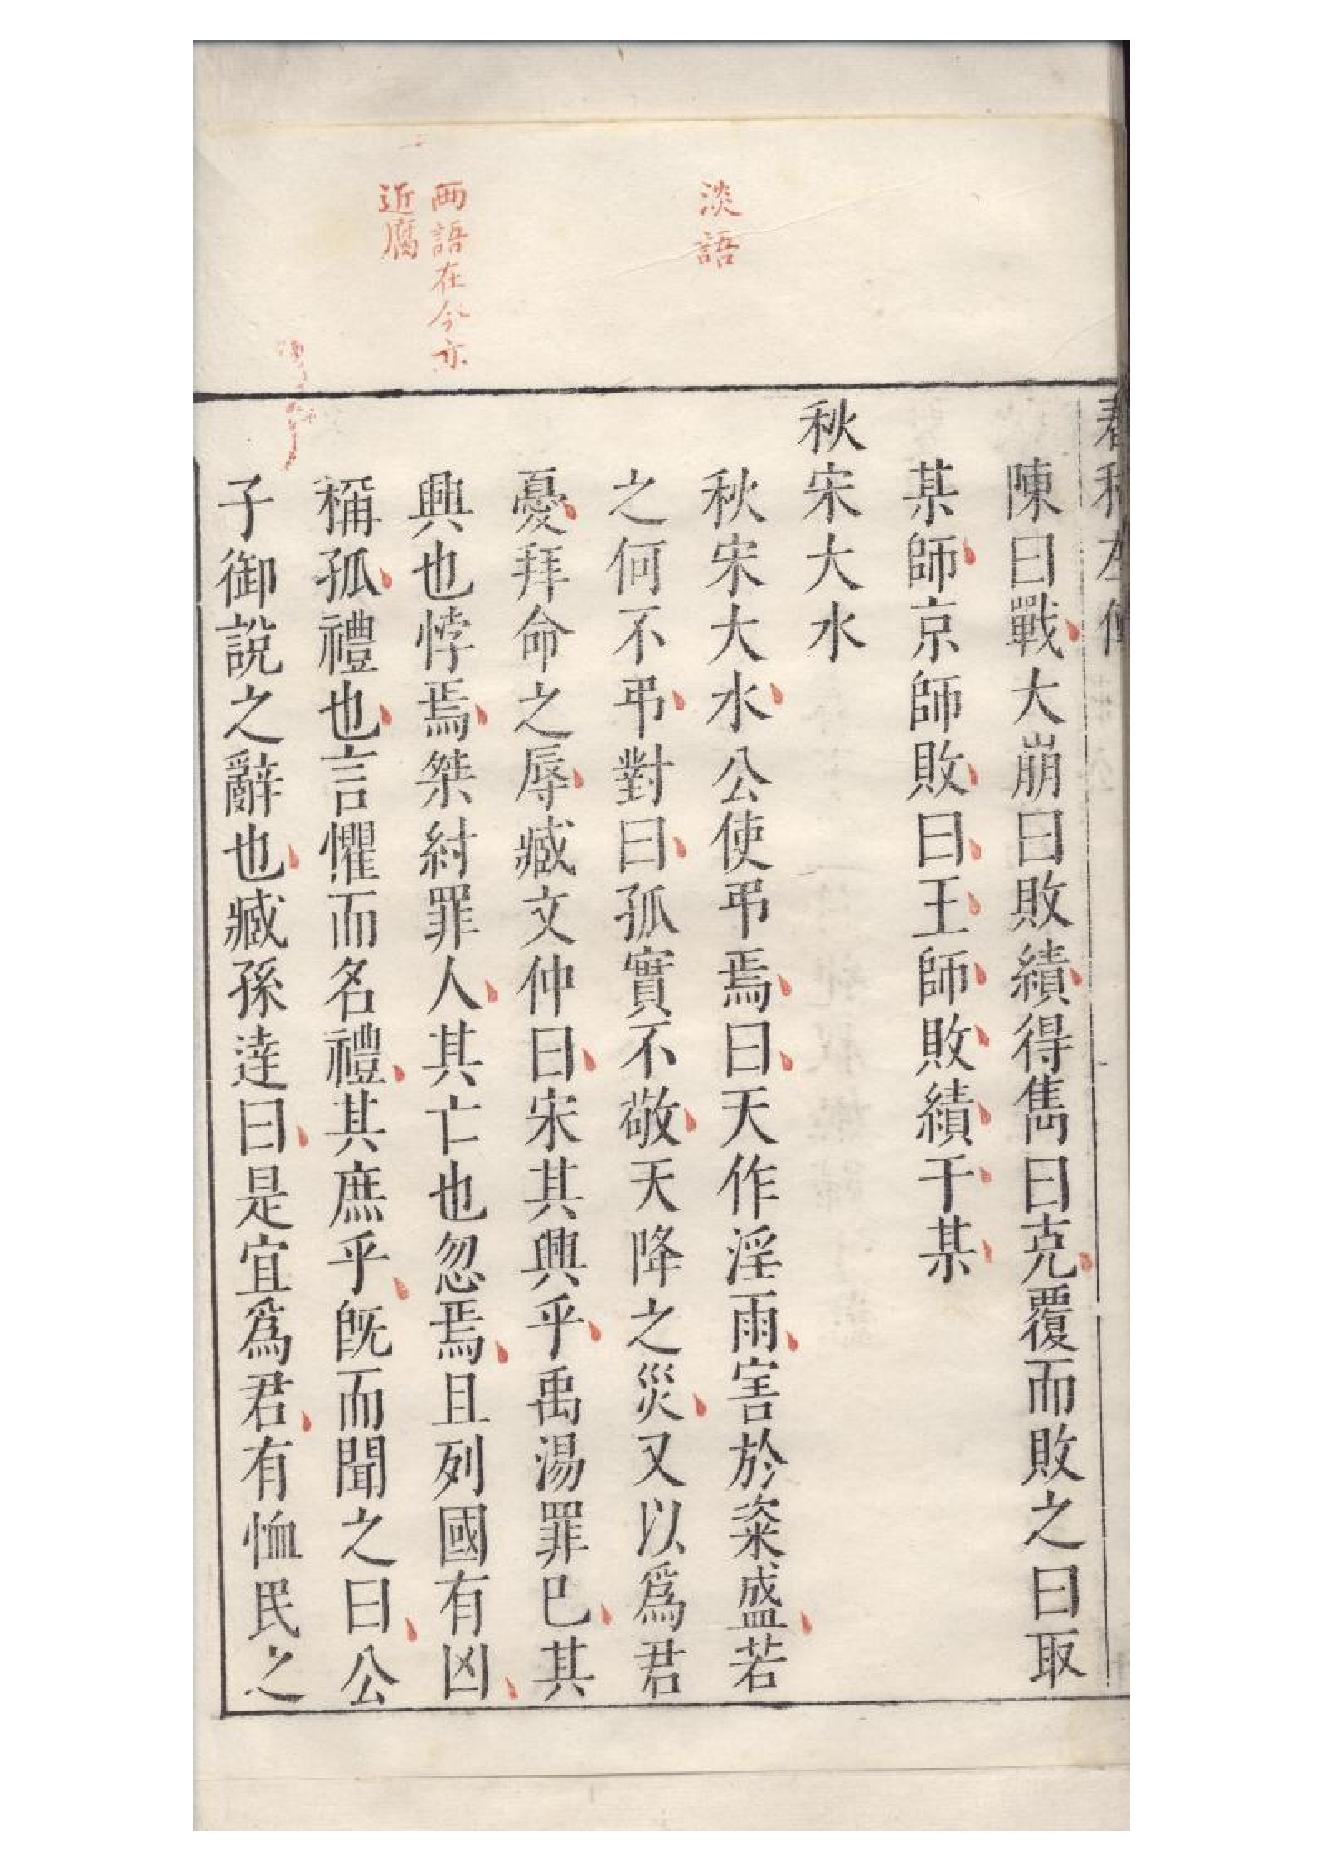 陳曰戰大崩曰敗績得雋曰克覆而敗之曰取
某師京師敗曰王師敗績于某
秋宋大水
淡語
秋宋大水公使弔焉曰天作淫雨害於粢盛若
之何不弔對曰孤實不敬天降之災又以爲君
憂拜命之辱臧文仲曰宋其興乎禹湯罪已其
兩語在今亦
近腐
興也悖焉桀紂罪人其亡也忽焉且列國有凶
稱孤禮也言懼而名禮其庶乎旣而聞之曰公
子御說之辭也臧孫達曰是宜爲君有恤民之